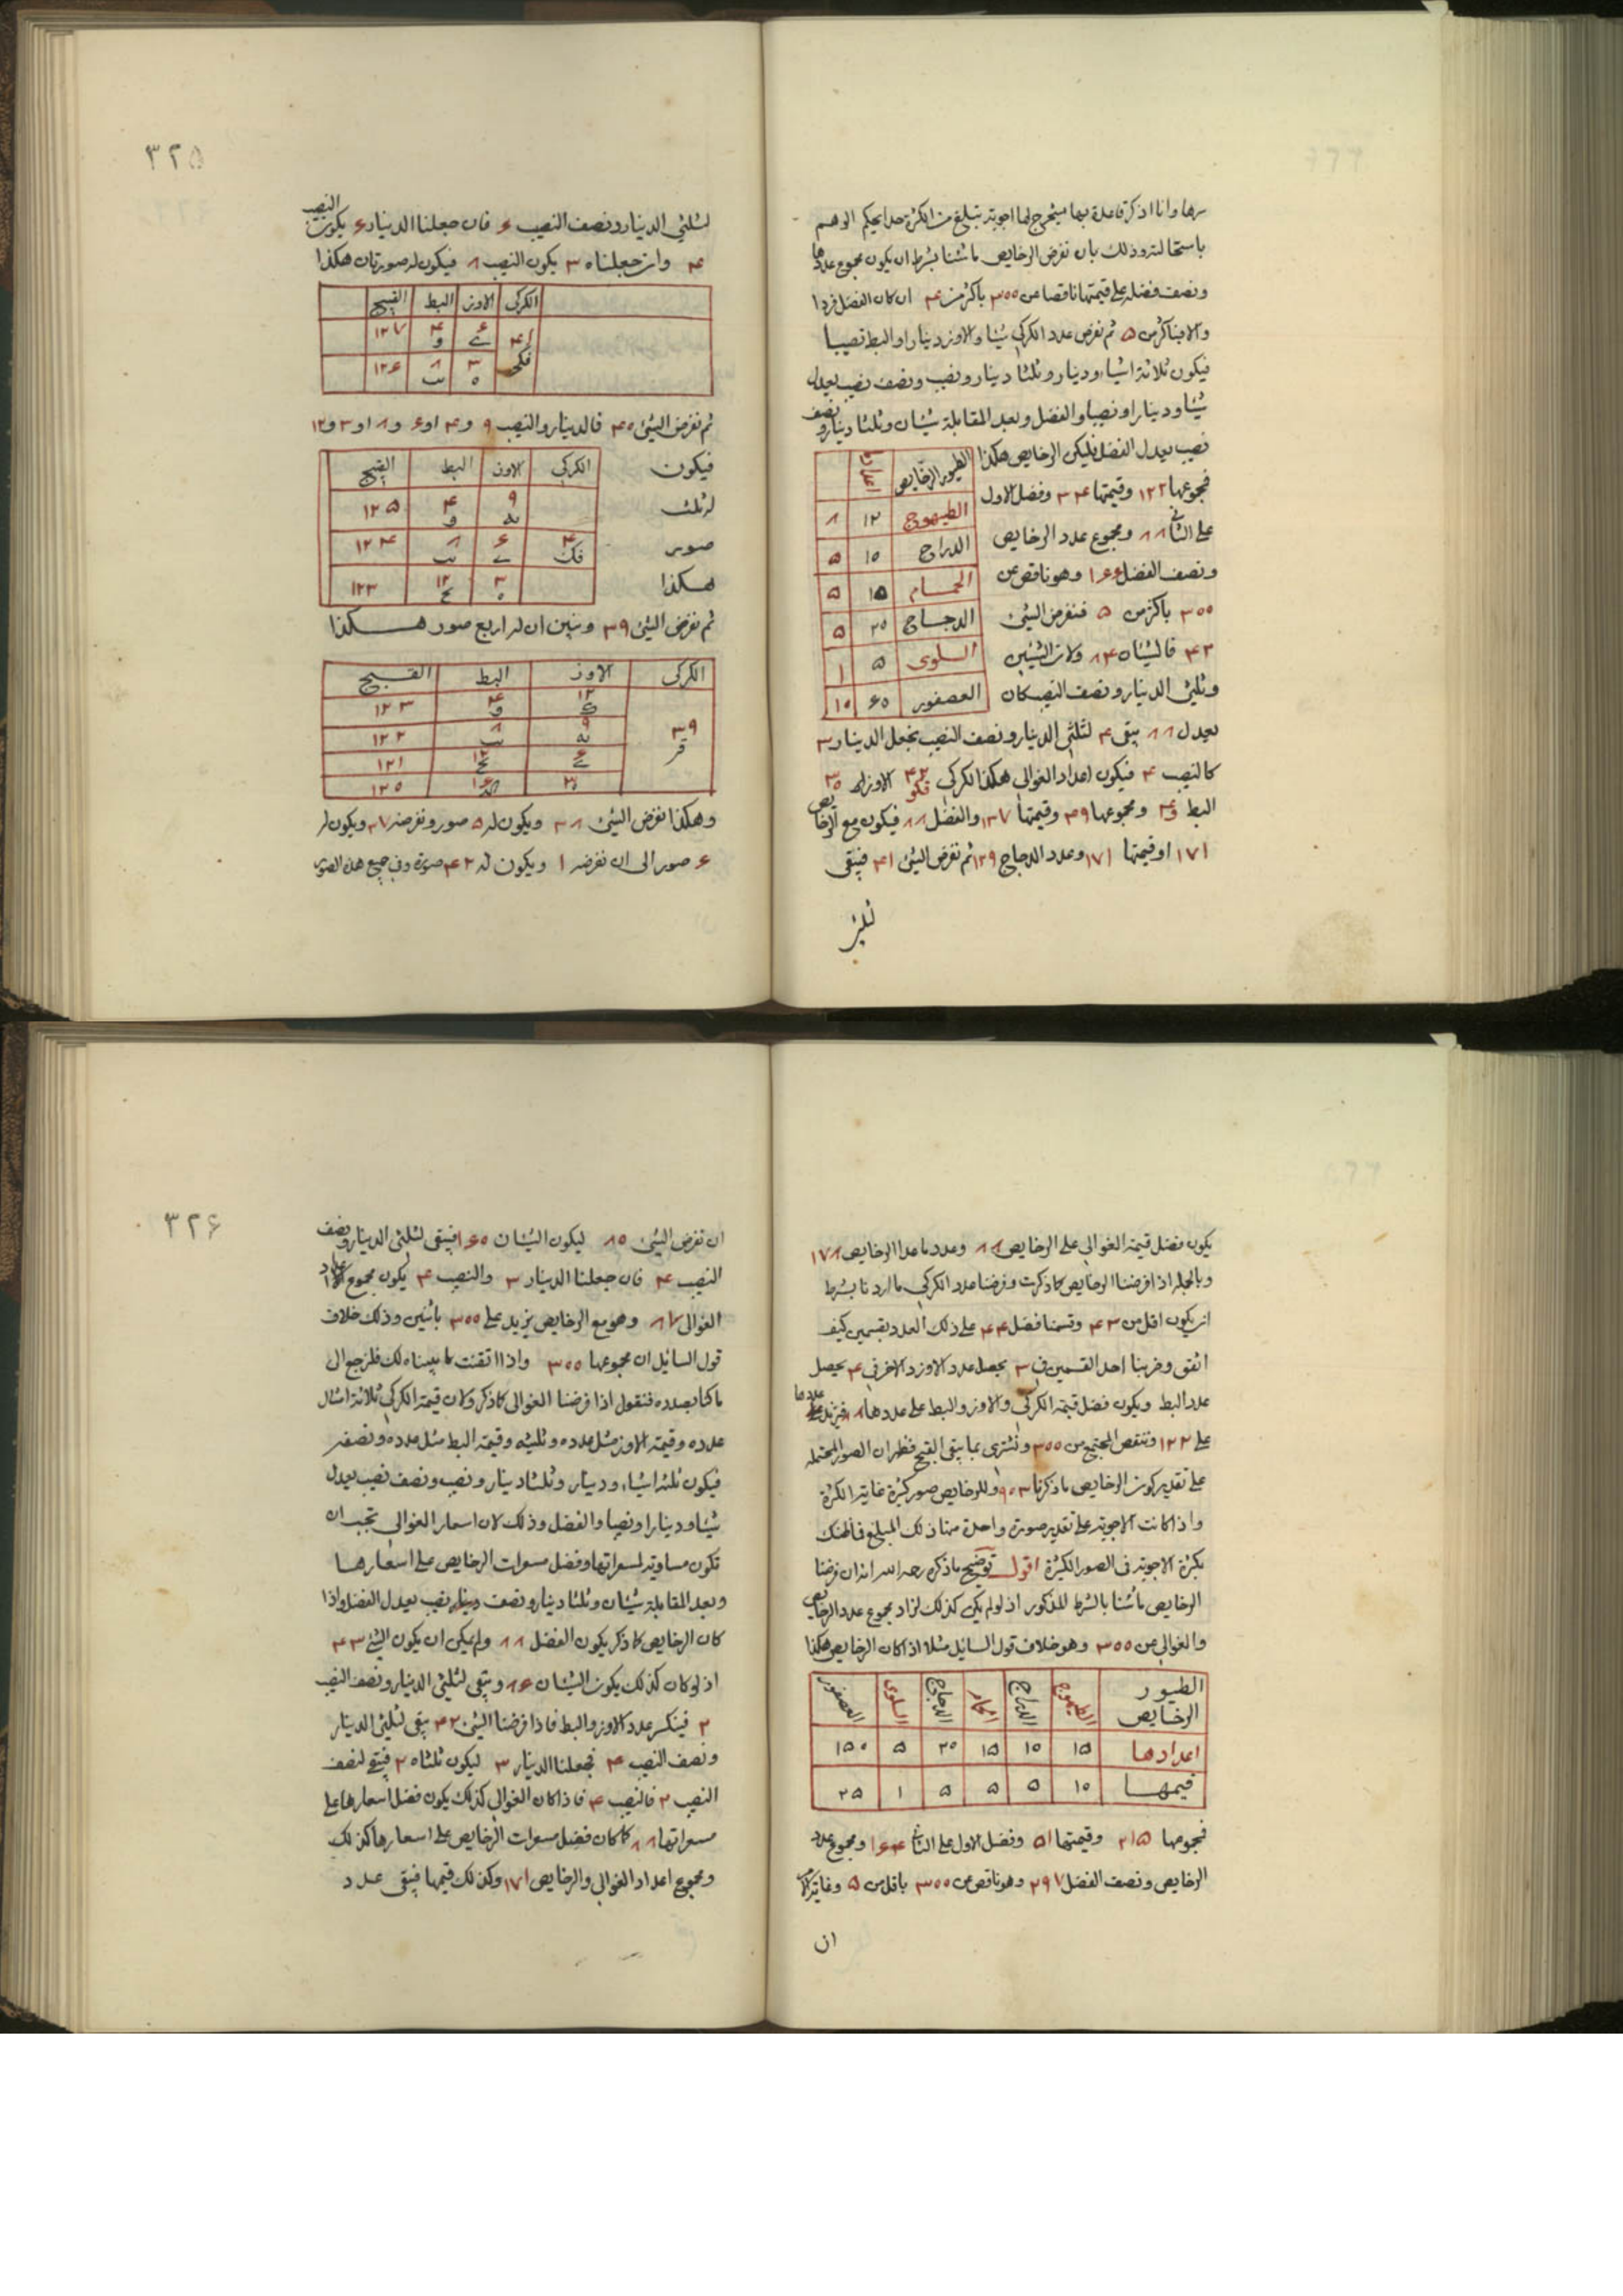 سرها وانا اذكر قاعدة بها يستخرج لها اجوبة تبلغ من الكثرة حدا يحكم الوهم
باستحالته وذلك بان نفرض الرخايص ما شئنا بشرط ان يكون مجموع عددها
ونصف فضله على قيمتها ناقصا عن ٣٠٠ باكثر من ۴ ان كان الفضل فردا
والا فباكثر من ۵ ثم نفرض عدد الكركي شيئا والاوز دينارا والبط نصيبا
فيكون ثلاثة اشياء ودينار وثلثا دينار ونصيب ونصف نصيب يعدل
شيئا ودينارا ونصيبا والفضل وبعد المقابلة شيئان وثلثا دينار ونصف
نصيب يعدل الفضل فليكن الرخايص هكذا
فمجموعها ١٢٢ وقيمتها ٣۴ وفضل الاول
على الثاني ٨٨ ومجموع عدد الرخايص
ونصف الفضل ١۶۶ وهو ناقص عن
٣٠٠ باكثر من ۵ فنفرض الشئ
۴٢ فالشيئان ٨۴ ولان الشيئين
وثلثي الدينار ونصف النصيب كان
الطيور الرخايص
الطيهوج ١٢ ٨
الدراج ١٠ ۵
الحمام ١۵ ۵
الدجاج ٢٠ ۵
السلوى ۵ ١
العصفور ۶٠ ١٠
يعدل ٨٨ يبقى ۴ لثلثي الدينار ونصف النصيب نجعل الدينار ٣
كالنصيب ۴ فيكون اعداد الغوالي هكذا الكركي ۴٢ قكو الاوز ٣
البط ۴ و ومجموعها ۴٩ وقيمتها ١٣٧ والفضل ٨٨ فيكون مع الرخايص
١٧١ وقيمتها ١٧١ وعدد الدجاج ١٢٩ ثم نفرض الشئ ۴١ فيبقى
لثلثي
٣٢۵
لثلثي الدينار ونصف النصيب ۶ فان جعلنا الدينار ۶ يكون النصيب
۴ وان جعلناه ٣ يكون النصيب ٨ فيكون له صورتان هكذا
الكركي الاوز البط القبج
۴١ قكج ۶ ى ۴ و ١٢٧
٣ ه ٨ يب ١٢۶
ثم نفرض الشئ ۴٠ فالدينار والنصيب ٩ و ۴ او ۶ و ٨ او ٣ و ١٢
فيكون
له ثلث
صور
هكذا
الكركي الاوز البط القبج
٩ يه ۴ و ١٢۵
۴٠ قك ۶ ى ٨ يب ١٢۴
٣ ه ١٢ يح ١٢٣
ثم نفرض الشئ ٣٩ ونبين ان له اربع صور هكذا
الكركي الاوز البط القبج
٣٩ قيز ١٢ ك ۴ و ١٢٣
٩ يه ٨ يب ١٢٢
۶ ى ١٢ يح ١٢١
٣ ه ١۶ كد ١٢٠
وهكذا نفرض الشئ ٣٨ ويكون له ۵ صور ونفرضه ٣٧ ويكون له
۶ صور الى ان نفرضه ١ ويكون له ۴٢ صورة وفي جميع هذه الصور
يكون فضل قيمة الغوالي على الرخايص ٨٨ وعدد ما عدا الرخايص ١٧٨
وبالجملة اذا فرضنا الرخايص كما ذكرت وفرضنا عدد الكركي ما اردنا بشرط
ان يكون اقل من ۴٣ وقسمنا فضل ۴۴ على ذلك العدد بقسمين كيف
اتفق وضربنا احد القسمين في ٣ يحصل عدد الاوز والاخر في ۴ يحصل
عدد البط ويكون فضل قيمة الكركي والاوز والبط على عددها ٨٨ فنزيد عددها
على ١٢٢ وننقص المجتمع من ٣٠٠ ونشتري بما بقي القبج فظهر ان الصور المحتملة
على تقدير كون الرخايص ما ذكرنا ٩٠٣ وللرخايص صور كثيرة غاية الكثرة
واذا كانت الاجوبة على تقدير صورة واحدة منها ذلك المبلغ فما ظنك
بكثرة الاجوبة في الصور الكثيرة اقول توضيح ما ذكره رحمه الله انه ان فرضنا
الرخايص ما شئنا بالشرط المذكور اذ لو لم يكن كذلك لزاد مجموع عدد الرخايص
والغوالي عن ٣٠٠ وهو خلاف قول السايل مثلا اذا كان الرخايص هكذا
الطيور الرخايص الطيهوج الدراج الحمام الدجاج السلوى العصفور
اعدادها ١۵ ١٠ ١۵ ٢٠ ۵ ١۵٠
قيمها ١٠ ۵ ۵ ۵ ١ ٢۵
فمجموعها ٢١۵ وقيمتها ۵١ وفضل الاول على الثاني ١۶۴ ومجموع عدد
الرخايص ونصف الفضل ٢٩٧ وهو ناقص عن ٣٠٠ باقل من ۵ وغاية الامر
ان
٣٢۶
ان نفرض الشئ ٨٠ ليكون الشيئان ١۶٠ فيبقى لثلثي الدينار ونصف
النصيب ۴ فان جعلنا الدينار ٣ والنصيب ۴ يكون مجموع اعداد
الغوالي ٨٧ وهو مع الرخايص يزيد على ٣٠٠ باثنين وذلك خلاف
قول السايل ان مجموعها ٣٠٠ واذا اتقنت ما بيناه لك فلنرجع الى
ما كنا بصدده فنقول اذا فرضنا الغوالي كما ذكر ولان قيمة الكركي ثلاثة امثال
عدده وقيمة الاوز مثل عدده وثلثيه وقيمة البط مثل عدده ونصفه
فيكون ثلثة اشياء ودينار وثلثا دينار ونصيب ونصف نصيب يعدل
شيئا ودينارا ونصيبا والفضل وذلك لان اسعار الغوالي تجب ان
تكون مساوية لمسعراتها وفضل مسعرات الرخايص على اسعارها
وبعد المقابلة شيئان وثلثا دينار ونصف نصيب يعدل الفضل واذا
كان الرخايص كما ذكر يكون الفضل ٨٨ ولم يمكن ان يكون الشئ ۴٣
اذ لو كان كذلك يكون الشيئان ٨۶ ويبقى لثلثي الدينار ونصف النصيب
٢ فينكسر عدد الاوز والبط فاذا فرضنا الشئ ۴٢ يبقى لثلثي الدينار
ونصف النصيب ۴ فجعلنا الدينار ٣ ليكون ثلثاه ٢ فيبقى لنصف
النصيب ٢ فالنصيب ۴ فاذا كان الغوالي كذلك يكون فضل اسعارها على
مسعراتها ٨٨ كما كان فضل مسعرات الرخايص على اسعارها كذلك
ومجموع اعداد الغوالي والرخايص ١٧١ وكذلك قيمها فيبقى عدد